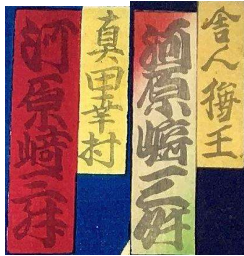 舎人梅王
河原崎三升
真田幸村
河原崎三升